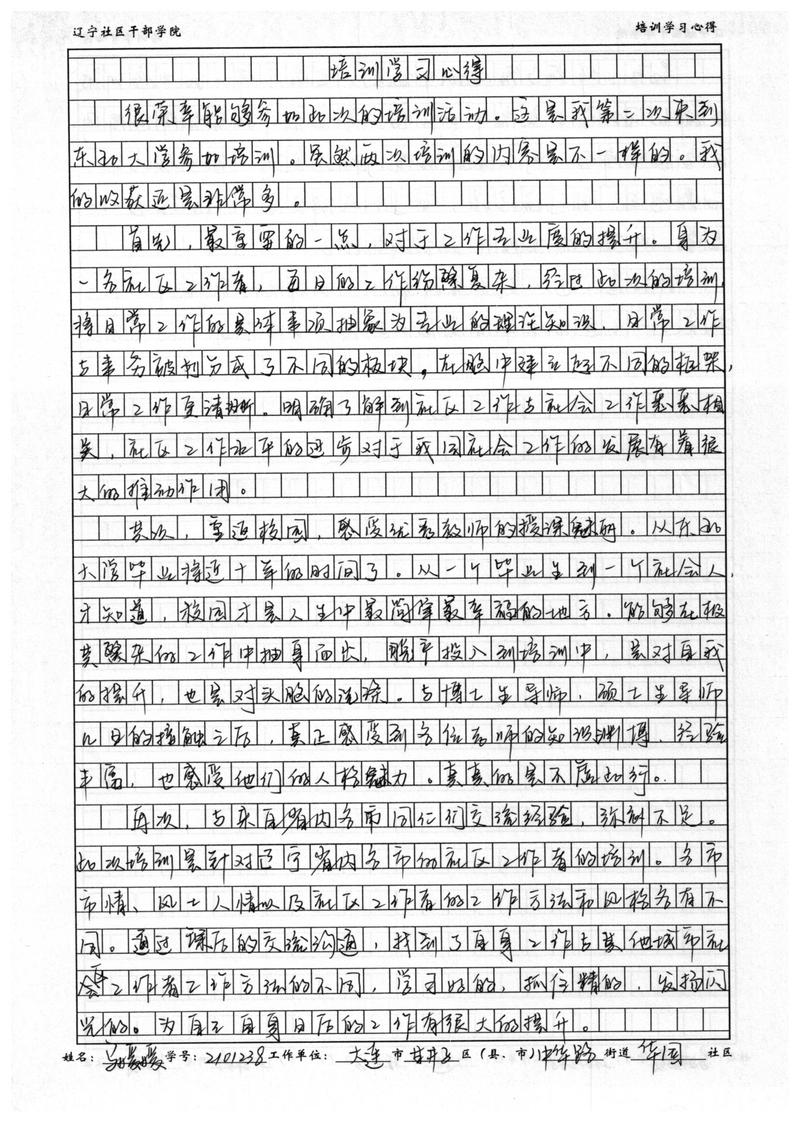 辽宁社区干部学院 培训学习心得
培训学习心得
很荣幸能够参加此次的培训活动。这是我第二次来到
东北大学参加培训。虽然两次培训的内容是不一样的。我
的收获还是非常多。
首先,最重要的一点,对于工作专业度的提升。身为
一名社区工作者,每日的工作纷繁复杂,经过此次的培训,
将日常工作的具体事项抽象为专业的理论知识,日常工作
与事务被划分成了不同的板块,在脑中建立好不同的框架,
日常工作更清晰。明确了解到社区工作与社会工作息息相
关,社区工作水平的进步对于我国社会工作的发展有着很
大的推动作用。
其次,重返校园,感受优秀教师的授课魅力。从东北
大学毕业将近十年的时间了。从一个毕业生到一个社会人,
才知道,校园才是人生中最简单最幸福的地方。能够在极
其繁杂的工作中抽身而出,脱产投入到培训中,是对自我
的提升,也是对头脑的洗涤。与博士生导师,硕士生导师
几日的接触之后,真正感受到各位老师的知识渊博、经验
丰富,也感受他们的人格魅力。真真的是不虚此行。
再次,与来自省内各市同仁们交流经验,弥补不足。
此次培训是针对辽宁省内各市的社区工作者的培训。各市
市情、风土人情以及社区工作者的工作方法和风格各有不
同。通过课后的交流沟通,找到了自身工作与其他城市社
会区工作者工作方法的不同,学习好的,抓住精的,发扬闪
光的。为自己自身日后的工作有很大的提升。
姓名: 学号: 2101238 工作单位: 大连 市 甘井子 区(县、市) 中华路 街道 华园 社区